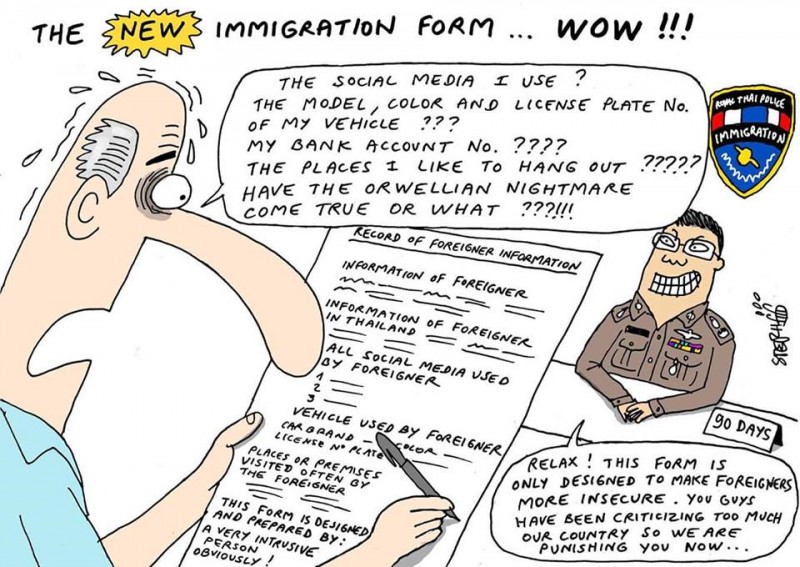 THE NEW IMMIGRATION FORM ... WOW !!!
THE SOCIAL MEDIA I USE ?
THE MODEL, COLOR AND LICENSE PLATE No.
OF MY VEHICLE ???
MY BANK ACCOUNT No. ????
THE PLACES I LIKE TO HANG OUT ?????
HAVE THE ORWELLIAN NIGHTMARE
COME TRUE OR WHAT ???!!!
ROYAL THAI POLICE
IMMIGRATION
RECORD OF FOREIGNER INFORMATION
INFORMATION OF FOREIGNER
INFORMATION OF FOREIGNER
IN THAILAND
ALL SOCIAL MEDIA USED
BY FOREIGNER
1
2
3
VEHICLE USED BY FOREIGNER
CAR BRAND — COLOR
LICENSE No PLATE
PLACES OR PREMISES
VISITED OFTEN BY
THE FOREIGNER
THIS FORM IS DESIGNED
AND PREPARED BY:
A VERY INTRUSIVE
PERSON !
OBVIOUSLY !
90 DAYS
RELAX ! THIS FORM IS
ONLY DESIGNED TO MAKE FOREIGNERS
MORE INSECURE. YOU GUYS
HAVE BEEN CRITICIZING TOO MUCH
OUR COUNTRY SO WE ARE
PUNISHING YOU NOW...